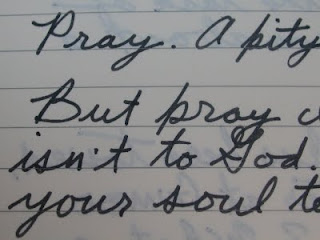 Pray. A pity
But pray
isn't to God.
your soul